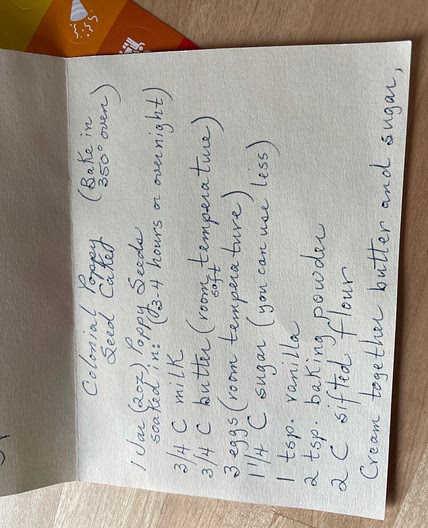 Colonial Poppy
Seed Cake
(Bake in
350° oven)
1 Jar (2oz) Poppy Seeds
soaked in: (3-4 hours or overnight)
3/4 C milk
3/4 C butter (room temperature)
soft
3 eggs (room temperature)
1 1/4 C sugar (you can use less)
1 tsp. vanilla
2 tsp. baking powder
2 C sifted flour
Cream together butter and sugar,